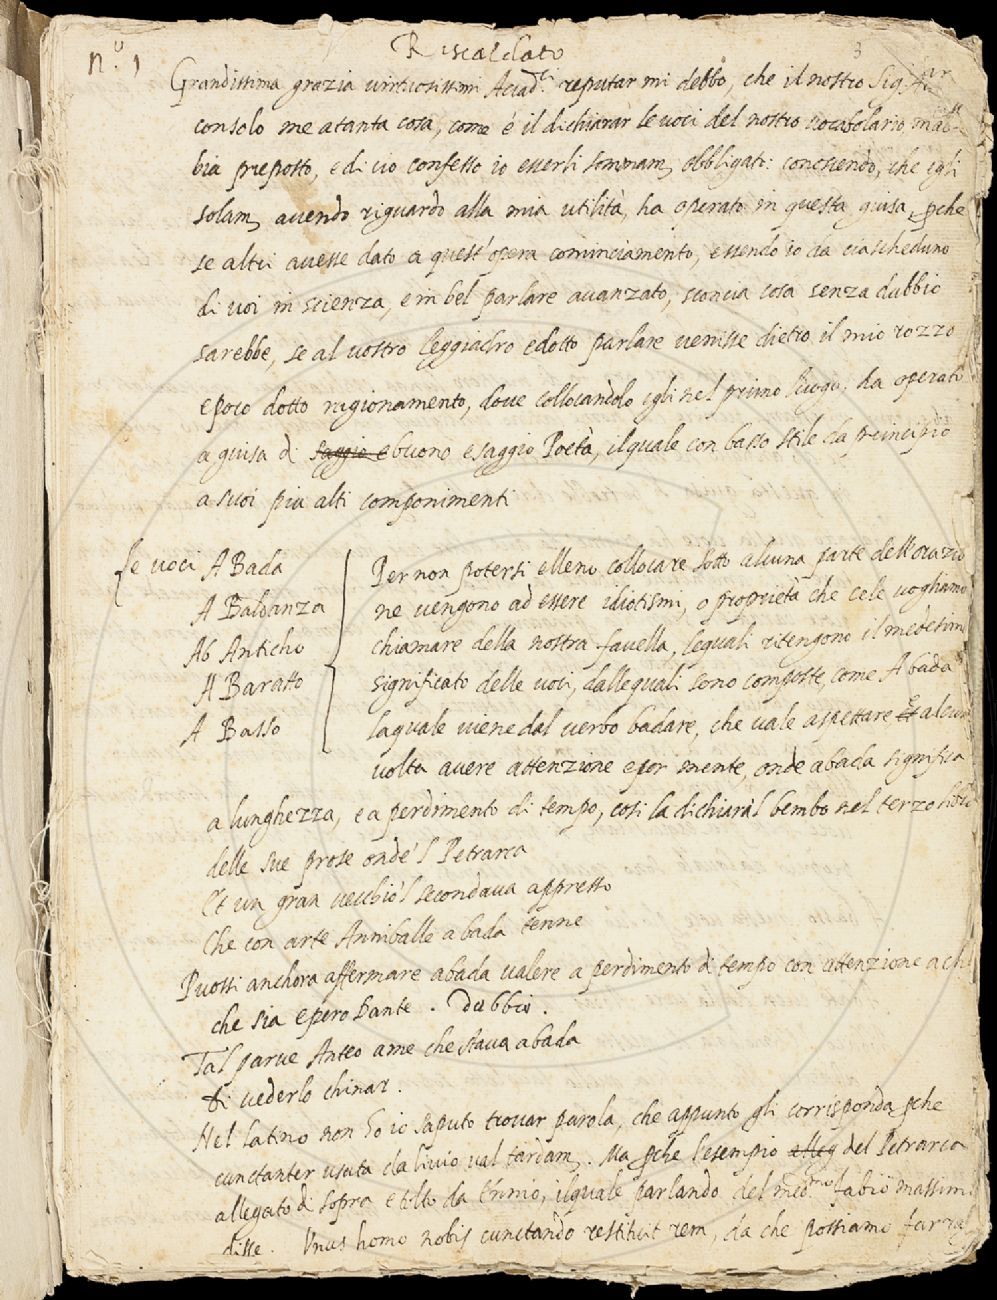 n.º 1
Riscaldato
3
Grandissima grazia virtuosissimi Accad.ci reputar mi debbo, che il nostro Sig. Ar
consolo me a tanta cosa, come è il dichiarar le voci del nostro vocabolario, m'ab-
bia preposto, e di ciò confesso io esserli sommam, obbligato: conciosiendo, che egli
solam, avendo riguardo alla mia utilità, ha operato in questa guisa, pche
se altri avesse dato a quest'opera cominciamento, essendo io da ciascheduno
di voi in scienza, e in bel parlare avanzato, sconcia cosa senza dubbio
sarebbe, se al vostro leggiadro e dotto parlare venisse dietro il mio rozzo
e poco dotto ragionamento, dove collocandolo egli nel primo luogo, ha operato
a guisa di saggio e buono e saggio Poeta, il quale con basso stile da principio
a suoi piu alti componimenti
Le voci A Bada
A Baldanza
Ab Anticho
A Baratto
A Basso
Per non potersi elleno collocare sotto alcuna parte dell'orazio
ne vengono ad essere idiotismi, o proprietà che cele vogliamo
chiamare della nostra favella, lequali ritengono il medesim
significato delle voci, dallequali sono composte, come A bada
laquale viene dal verbo badare, che vale aspettare Et alcun
volta avere attenzione e por mente, onde abada significa
a lunghezza, e a perdimento di tempo, cosi la dichiara'l bembo nel terzo libro
delle sue prose onde'l Petrarca
Et un gran vecchio'l secondava appresso
Che con arte Anniballe a bada tenne
Puossi anchora affermare abada valere a perdimento di tempo con attenzione a ch
che sia e pero Dante . Dubbio .
Tal parve Anteo a me che stava a bada
Di vederlo chinar .
Nel latino non ho io saputo trovar parola, che appunto gli corrisponda pche
cunctanter usata da livio val tardam, . Ma pche l'esempio alleg del Petrarca
allegato di sopra e tolto da Ennio, il quale parlando del med.mo fabio massim
disse . Unus homo nobis cunctando restituit rem, da che possiamo farra